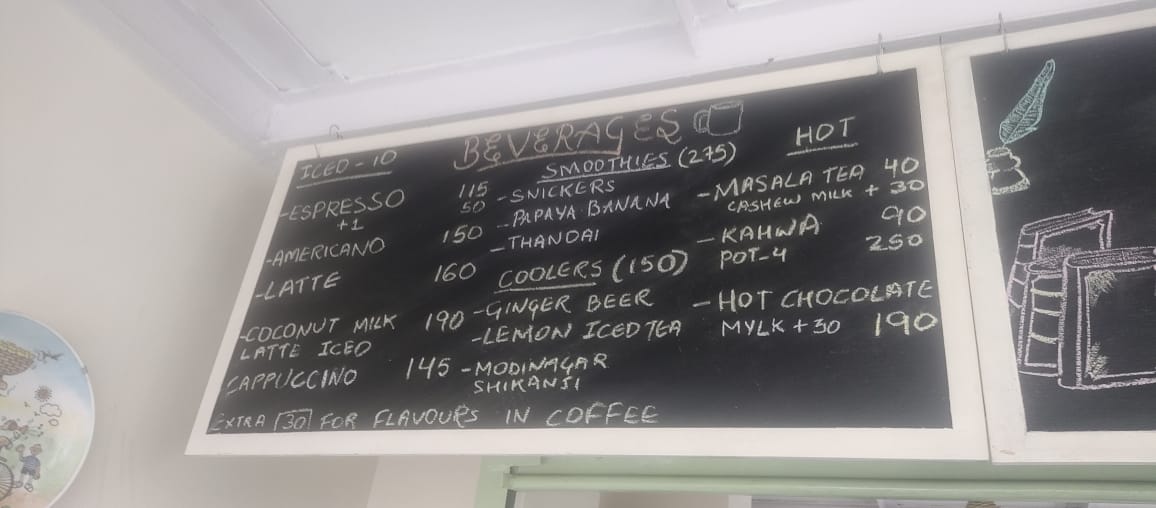 BEVERAGES
ICED - 10
-ESPRESSO 115
+1 50
-AMERICANO 150
-LATTE 160
-COCONUT MILK 190
LATTE ICED
CAPPUCCINO 145
SMOOTHIES (275)
-SNICKERS
-PAPAYA BANANA
-THANDAI
COOLERS (150)
-GINGER BEER
-LEMON ICED TEA
-MODINAGAR
SHIKANJI
HOT
-MASALA TEA 40
CASHEW MILK + 30
-KAHWA 90
POT-4 250
-HOT CHOCOLATE
MYLK +30 190
EXTRA 30 FOR FLAVOURS IN COFFEE